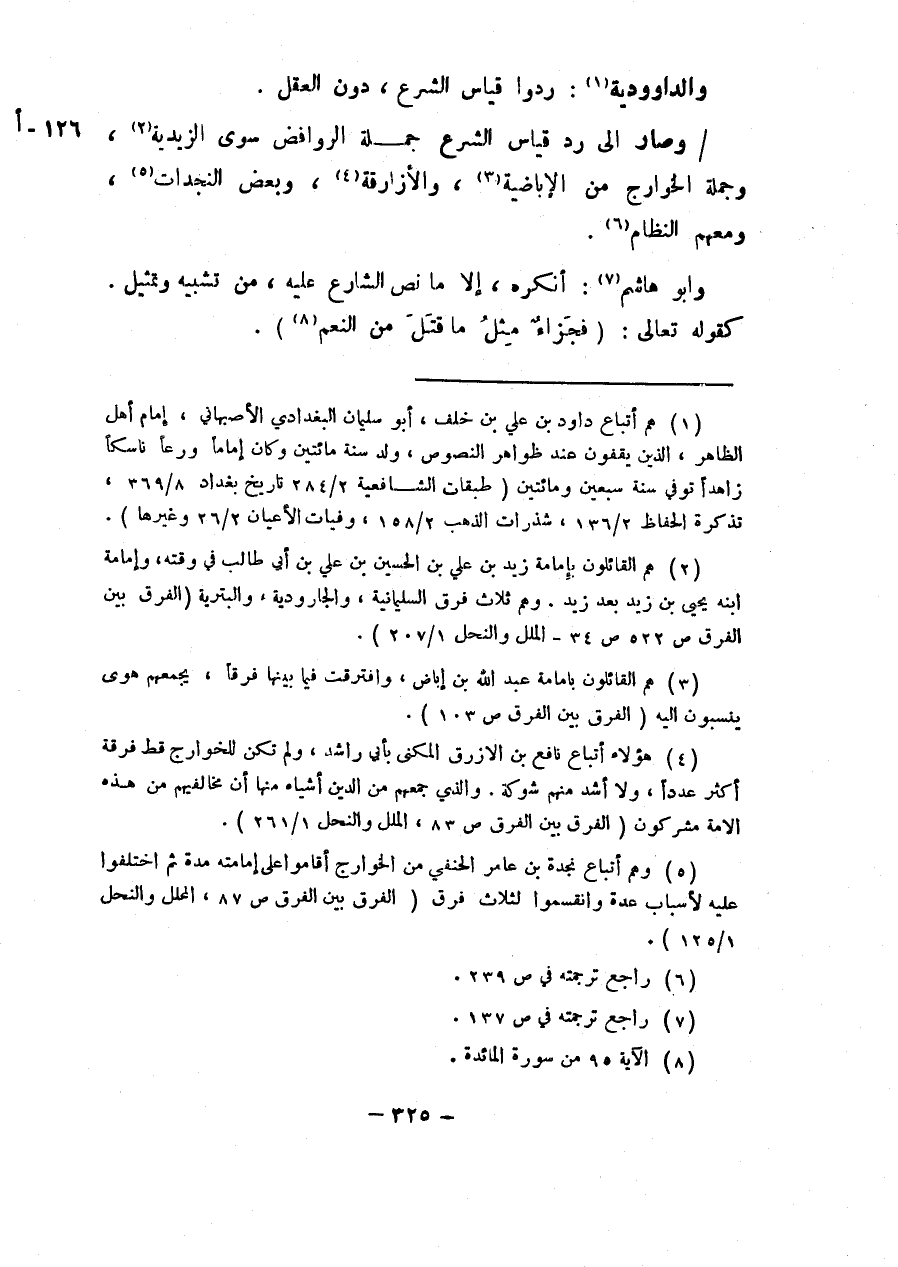 والداوودية(١) : ردوا قياس الشرع ، دون العقل .
/ وصار الى رد قياس الشرع جمــلة الروافض سوى الزيدية(٢) ، ١٢٦-أ
وجملة الخوارج من الإباضية(٣) ، والأزارقة(٤) ، وبعض النجدات(٥) ،
ومعهم النظام(٦) .
وابو هاشم(٧) : أنكره ، إلا ما نص الشارع عليه ، من تشبيه وتمثيل .
كقوله تعالى : ( فجَزاءٌ مِثلُ ما قتَلَ من النعم(٨) ) .
(١) هم أتباع داود بن علي بن خلف ، أبو سليمان البغدادي الأصبهاني ، إمام أهل
الظاهر ، الذين يقفون عند ظواهر النصوص ، ولد سنة مائتين وكان إماماً ورعاً ناسكاً
زاهداً توفي سنة سبعين ومائتين ( طبقات الشــافعية ٢٨٤/٢ تاريخ بغداد ٣٦٩/٨ ،
تذكرة الحفاظ ١٣٦/٢ ، شذرات الذهب ١٥٨/٢ ، وفيات الأعيان ٢٦/٢ وغيرها ) .
(٢) هم القائلون بإمامة زيد بن علي بن الحسين بن علي بن أبي طالب في وقته، وإمامة
ابنه يحيى بن زيد بعد زيد . وهم ثلاث فرق السليمانية ، والجارودية ، والبترية (الفرق بين
الفرق ص ٥٢٢ ص ٣٤ - الملل والنحل ٢٠٧/١ ) .
(٣) هم القائلون بامامة عبد الله بن إباض ، وافترقت فيما بينها فرقاً ، يجمعهم هوى
ينسبون اليه ( الفرق بين الفرق ص ١٠٣ ) .
(٤) هؤلاء أتباع نافع بن الازرق المكنى بأبي راشد ، ولم تكن للخوارج قط فرقة
أكثر عدداً ، ولا أشد منهم شوكة . والذي جمعهم من الدين أشياء منها أن مخالفيهم من هــذه
الامة مشركون ( الفرق بين الفرق ص ٨٣ ، الملل والنحل ٢٦١/١ ) .
(٥) وهم أتباع نجدة بن عامر الحنفي من الخوارج أقاموا على إمامته مدة ثم اختلفوا
عليه لأسباب عدة وانقسموا لثلاث فرق ( الفرق بين الفرق ص ٨٧ ، الملل والنحل
١٢٥/١ ) .
(٦) راجع ترجمته في ص ٢٣٩ .
(٧) راجع ترجمته في ص ١٣٧ .
(٨) الآية ٩٥ من سورة المائدة .
- ٣٢٥ -